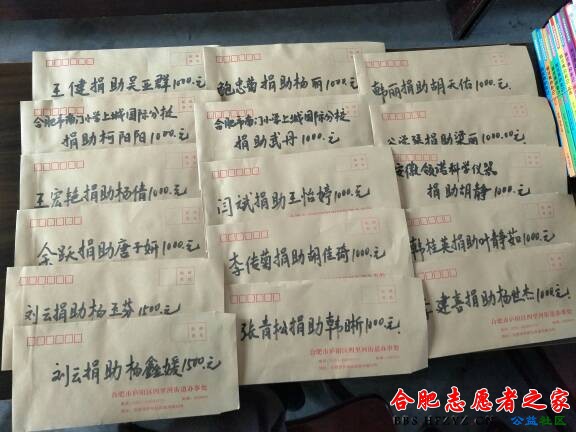 王健捐助吴亚群1000.元
合肥市南门小学上城国际分校
捐助柯阳阳1000.元
王宏艳捐助杨倩1000.元
余跃捐助唐子妍1000.元
刘云捐助杨玉芬1500.元
刘云捐助杨鑫媛1500元
合肥市庐阳区四里河街道办事处
鲍忠菊捐助杨丽1000.元
合肥市南门小学上城国际分校
捐助武丹1000.元
闫斌捐助王怡婷1000.元
李传菊捐助胡佳琦1000.元
张青松捐助韩晰1000元.
合肥市庐阳区四里河街道办事处
韩丽捐助胡天佑1000.元
捐助梁丽1000.元
安徽领诺科学仪器
捐助胡静1000.元
韩桂英捐助叶静茹1000.元
建喜捐助杨世杰1000元.
合肥市庐阳区四里河街道办事处
合肥志愿者之家
BBS.HFZYZ.CN 公益社区